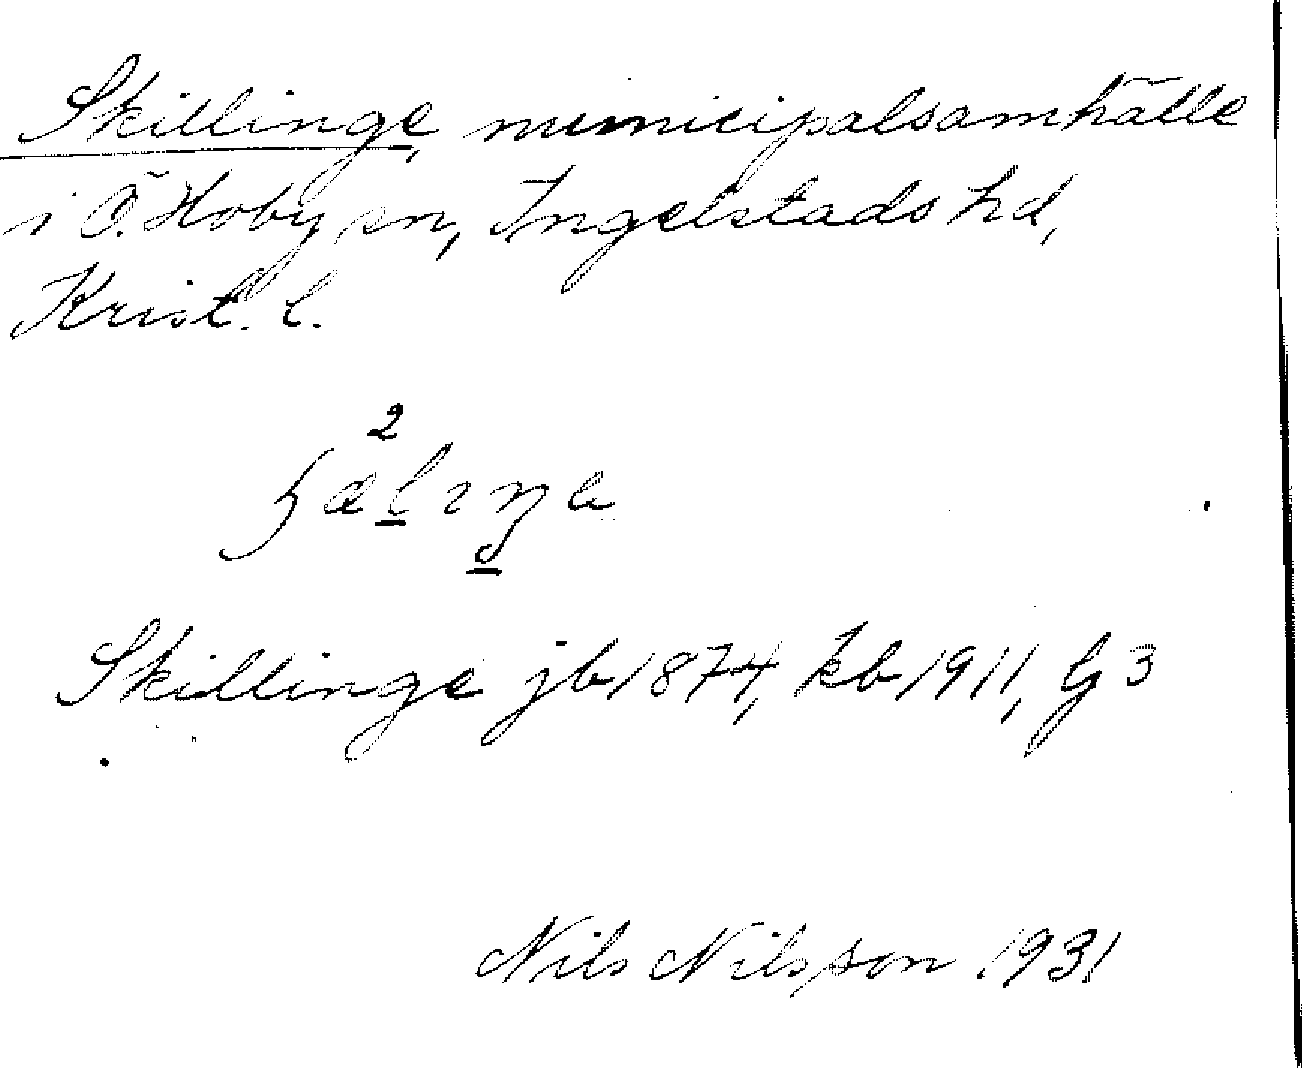 Skillinge, municipalsamhälle
i Ö. Hoby sn, Ingelstads hd,
Krist. l.
Skillinge jb 1874, kb 1911, G 3
Nils Nilsson 1931